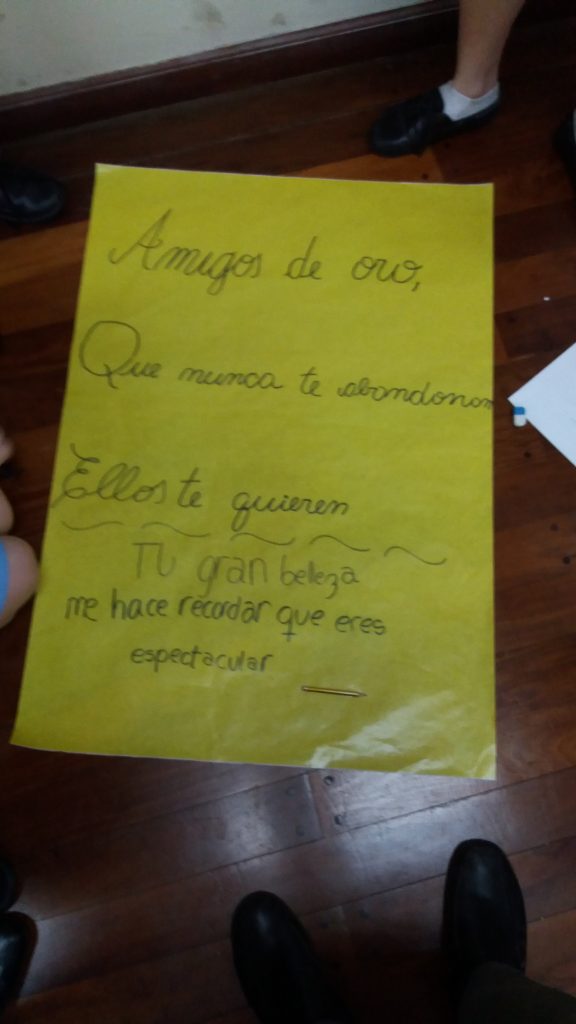 Amigos de oro,
Que nunca te abandonan
Ellos te quieren
Tu gran belleza
me hace recordar que eres
espectacular